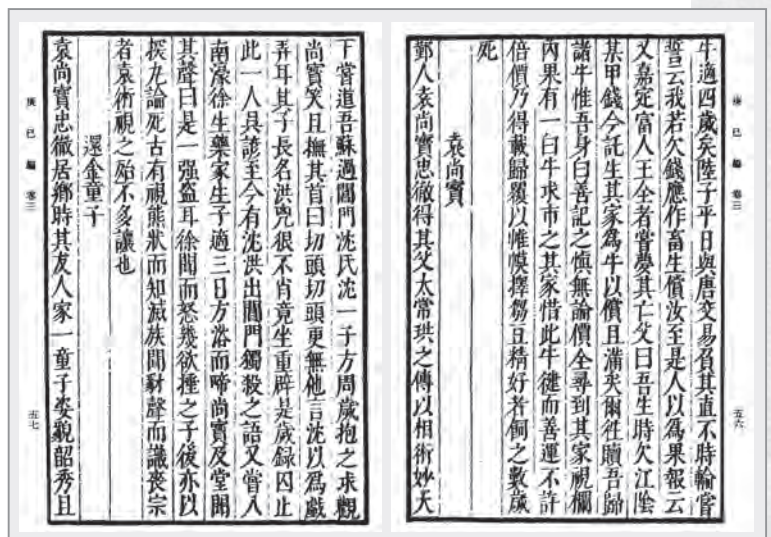 庚巳編 卷三
五六
牛適四歲矣陸子平日與唐交易負其直不時輸嘗
誓云我若欠錢應作畜生償汝至是人以為果報云
又嘉定富人王全者嘗夢其亡父曰吾生時欠江陰
某甲錢今託生其家為牛以償且滿矣爾往贖吾歸
諸牛惟吾身白善記之慎無論價全尋到其家視欄
內果有一白牛求市之其家惜此牛健而善運不許
倍價乃得載歸覆以帷幙擇芻豆精好者飼之數歲
死
袁尚寶
鄞人袁尚寶忠徹得其父太常珙之傳以相術妙天
下嘗道吾蘇過閶門沈氏沈一子方周歲抱之求觀
尚寶笑且撫其首曰切頭切頭更無他言沈以為戲
弄耳其子長名洪兇很不肖竟坐重辟是歲録囚止
此一人具諺至今有沈洪出閶門獨殺之語又嘗入
南濠徐生藥家生子適三日方浴而啼尚寶及堂聞
其聲曰是一强盜耳徐聞而怒幾欲捶之子後亦以
探丸論死古有視熊狀而知滅族聞豺聲而識喪宗
者袁術視之殆不多讓也
還金童子
袁尚寶忠徹居鄉時其友人家一童子姿貌韶秀且
庚巳編 卷三
五七